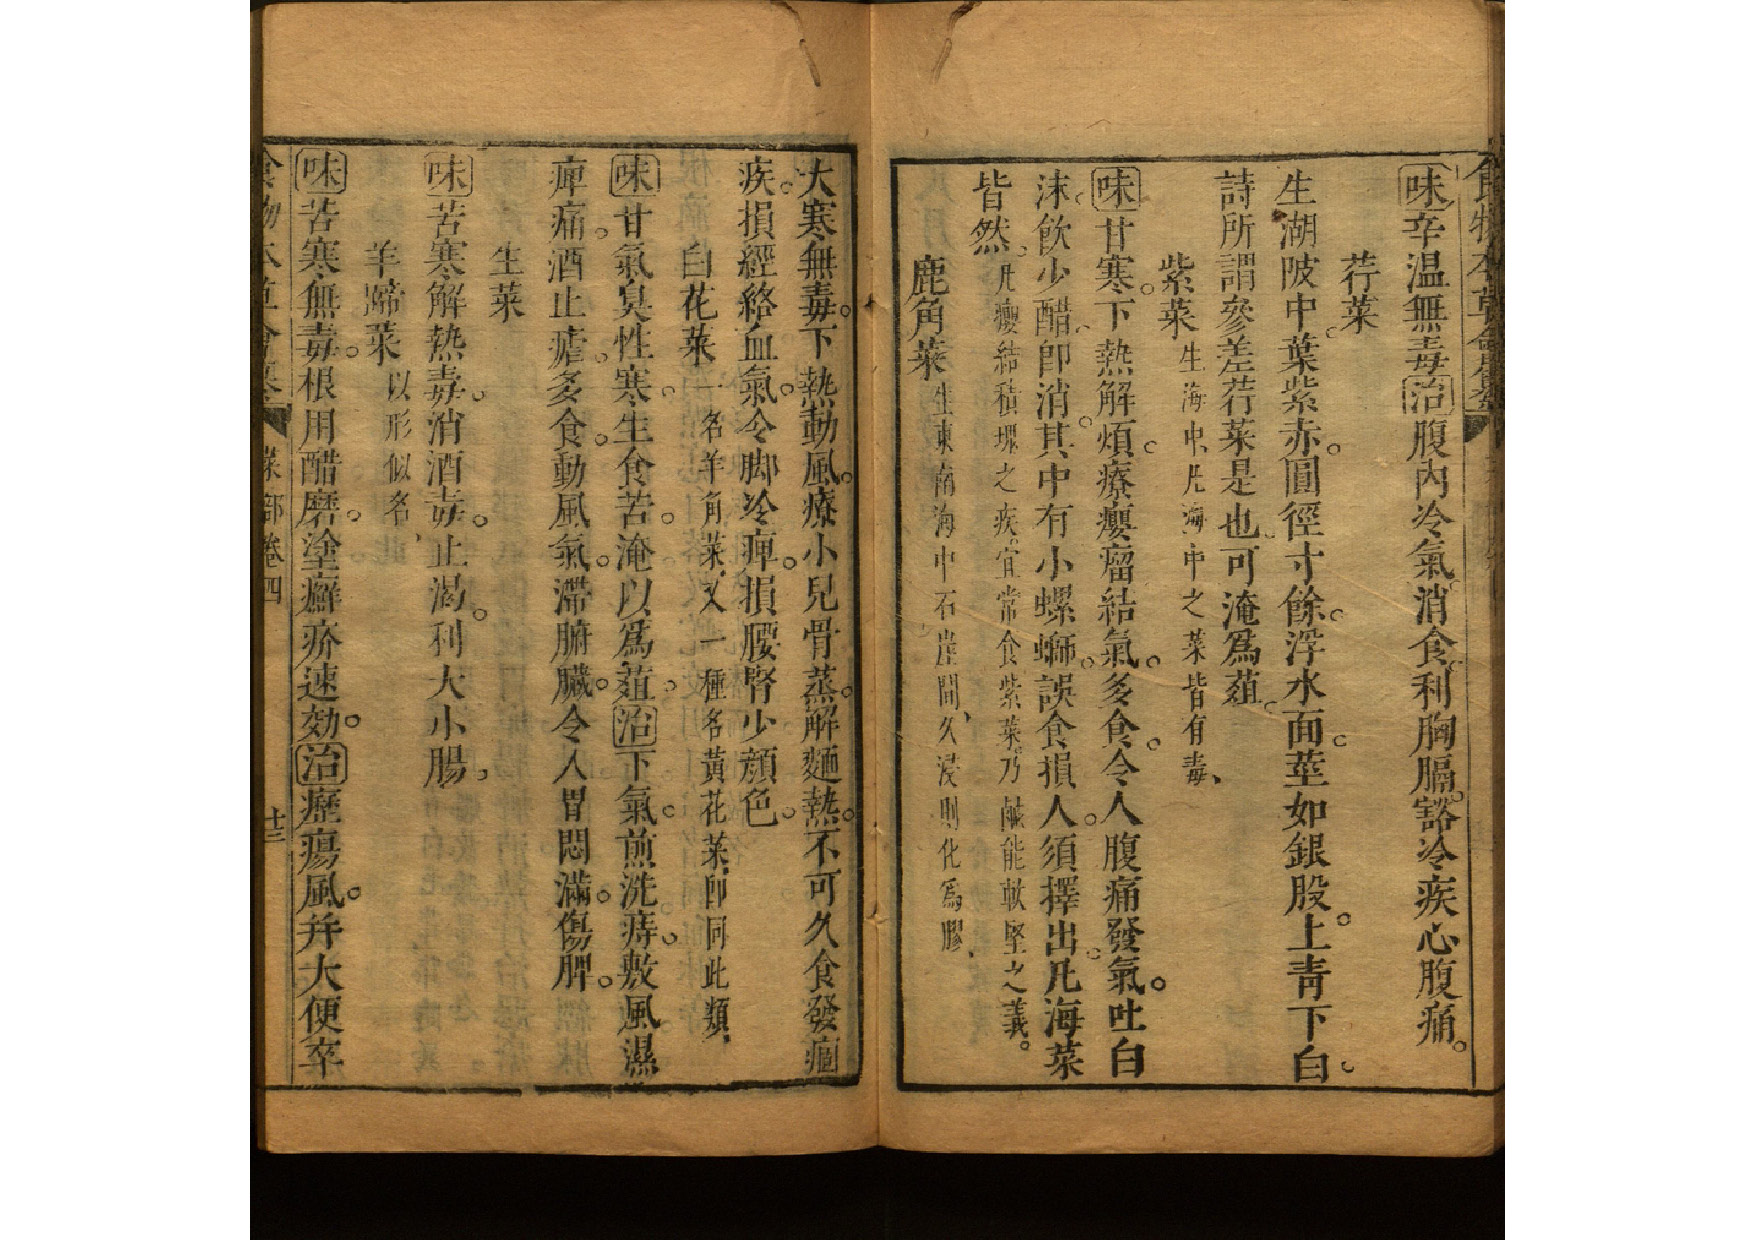 味辛温無毒治腹內冷氣消食利胸膈豁冷疾心腹痛。
荇菜
生湖陂中葉紫赤圓徑寸餘浮水面莖如銀股上青下白
詩所謂參差荇菜是也可淹爲菹
紫菜生海中凡海中之菜皆有毒
味甘寒下熱解煩療癭瘤結氣多食令人腹痛發氣吐白
沫飲少醋卽消其中有小螺螄誤食損人須擇出凡海菜
皆然凡癭結積塊之疾宜常食紫菜乃鹹能軟堅之義。
鹿角菜生東南海中石崖間久浸則化爲膠
大寒無毒下熱動風療小兒骨蒸解麵熱不可久食發痼
疾損經絡血氣令脚冷痺損腰腎少顏色
白花菜一名羊角菜又一種名黃花菜卽同此類
味甘氣臭性寒生食苦淹以爲菹治下氣煎洗痔敷風濕
痺痛酒止瘧多食動風氣滯腑臟令人胃悶滿傷脾
生菜
味苦寒解熱毒消酒毒止渴利大小腸
羊蹄菜以形似名
味苦寒無毒根用醋磨塗癬疥速効治癧瘍風并大便卒
食物本草會纂 菜部卷四 十三